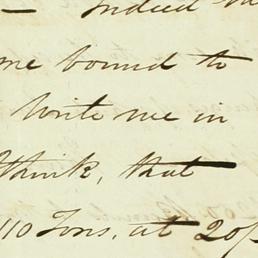 — Indeed
me bound to
write me in
think, that
110 Tons, at 20/